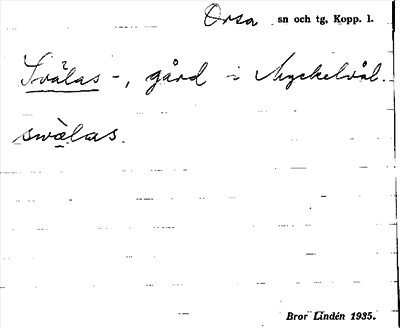 Orsa sn och tg, Kopp. l.
Svälas -, gård i Myckelvål.
swàlas.
Bror Lindén 1935.